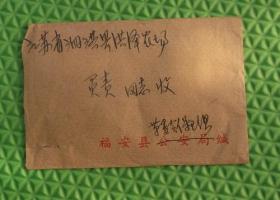 江苏省泗洪县洪泽农场
负责同志收
福安县公安局缄